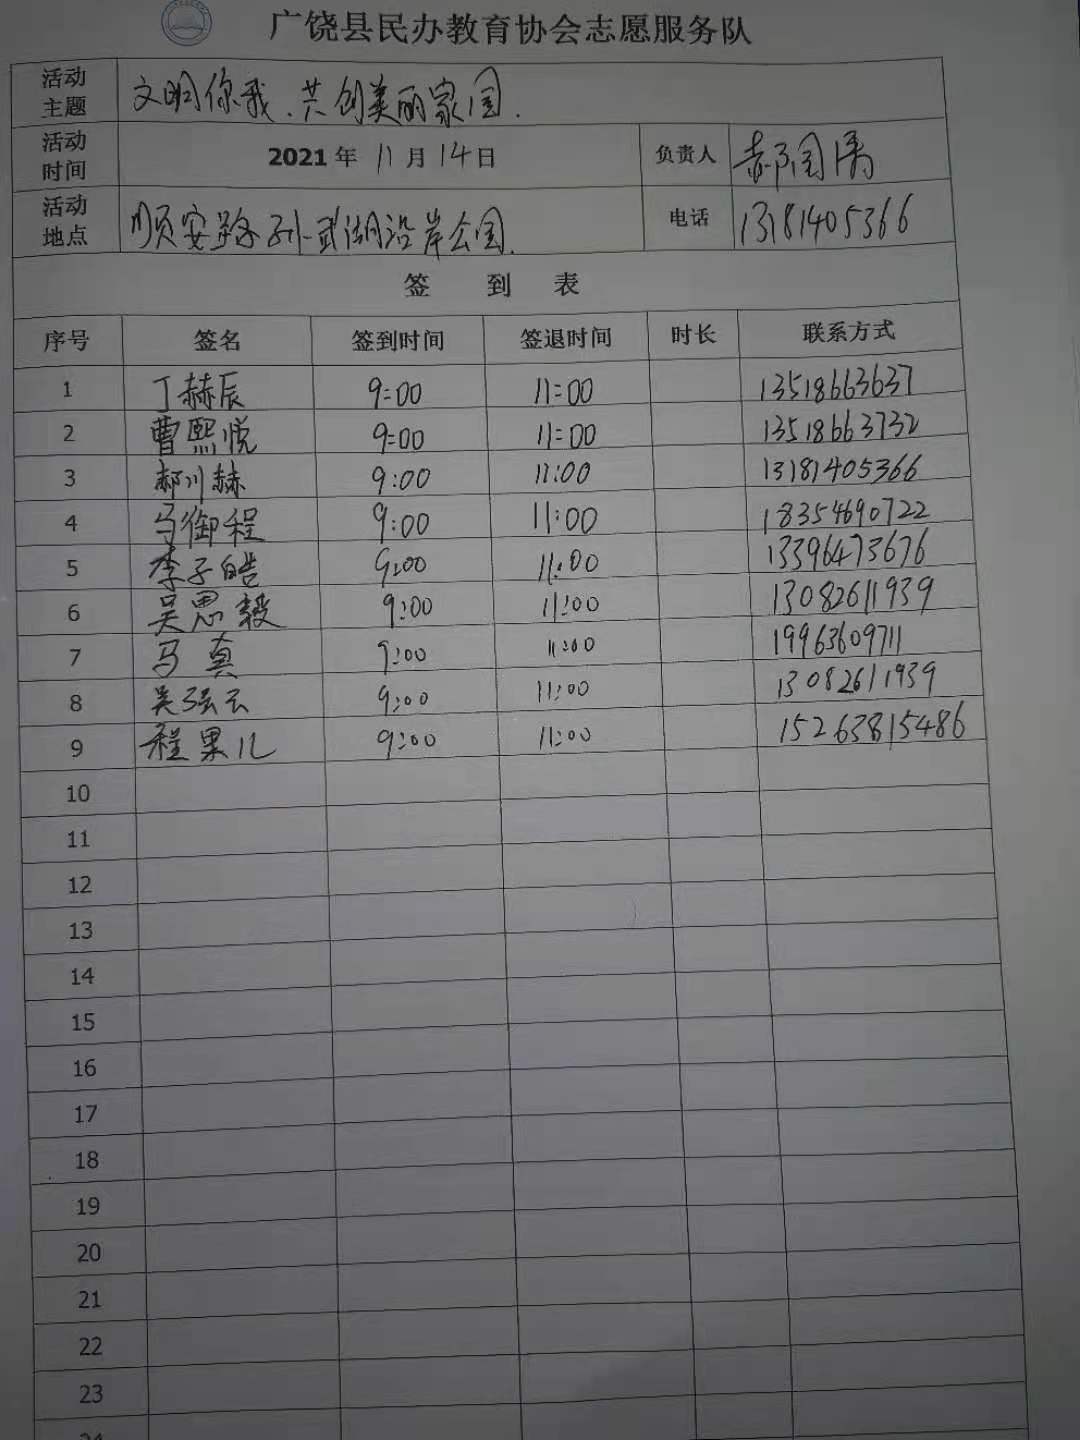 广饶县民办教育协会志愿服务队
活动主题 文明你我、共创美丽家园.
活动时间 2021年11月14日 负责人 郝国
活动地点 顺安路孙武湖沿岸公园. 电话 13181405366
签 到 表
序号 签名 签到时间 签退时间 时长 联系方式
1 丁赫辰 9:00 11:00 13518663637
2 曹熙悦 9:00 11:00 13518663732
3 郝川赫 9:00 11:00 13181405366
4 马御程 9:00 11:00 18354690722
5 李子皓 9:00 11:00 13396473676
6 吴思毅 9:00 11:00 13082611939
7 马真 9:00 11:00 19963609711
8 吴强云 9:00 11:00 13082611939
9 程果儿 9:00 11:00 15263815486
10
11
12
13
14
15
16
17
18
19
20
21
22
23
24